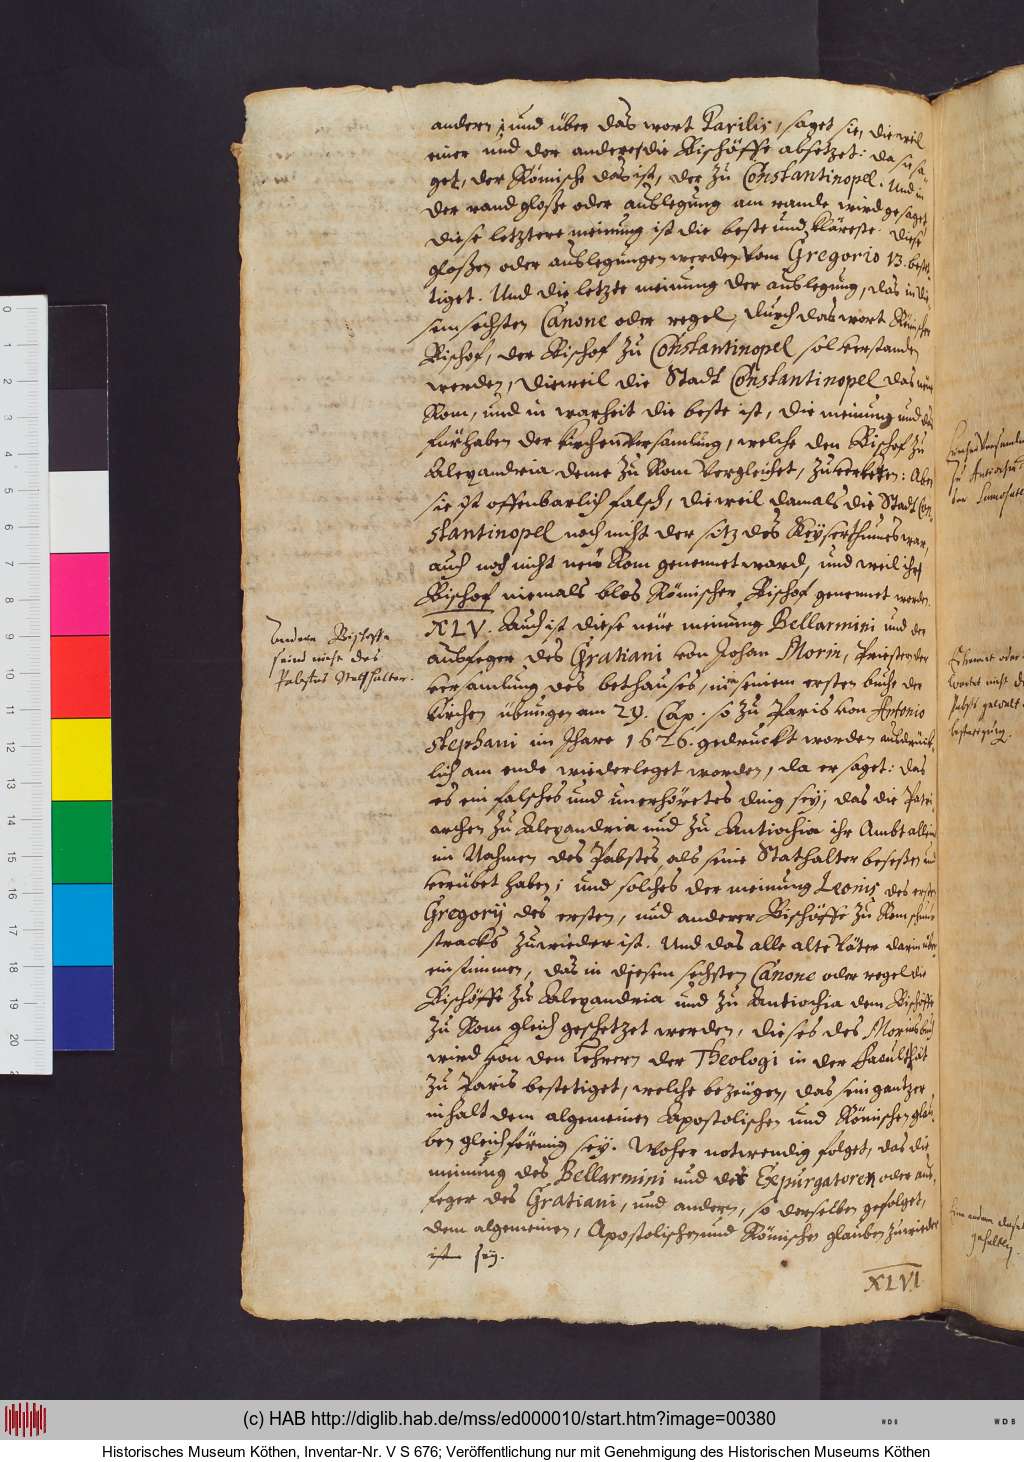 andern; und über das wort Parilis, saget sie, die weil
einer und der andere die Bischöffe absetzet: da sie sa-
get, der Römische das ist, der zu Constantinopel. Und in
der rand gloße oder außlegung am rande wird gesaget
diese letztere meinung ist die beste und kläreste. diese
gloßen oder außlegungen werden vom Gregorio 13. beste-
tiget. Und die letzte meinung der außlegung, das in die-
sem sechsten Canone oder regel, durch das wort Römischer
Bischof, der Bischof zu Constantinopel sol verstanden
werden, dieweil die Stadt Constantinopel das neue
Rom, und in warheit die beste ist, die meinung und das
fürhaben der kirchenversamlung, welche den Bischof zu
Alexandria deme zu Rom vergleichet, zuverketten: Aber
sie ist offenbarlich falsch, dieweil damals die Stadt Con-
stantinopel noch nicht der sitz des Keyserthumes war,
auch noch nicht neü Rom genennet ward, und weil ihr
Bischof niemals blos Römischer Bischof genennet worden.
XLV. Auch ist diese neüe meinung Bellarmini und der
ausfeger des Gratiani von Johan Morin, Priester der
versamlung des bethauses, in seinem ersten buche der
Kirchen übungen am 29. Cap. so zu Paris von Antonio
Stephani im Jhare 1626. gedruckt worden außdrück-
lich am ende wiederleget worden, da er saget: das
es ein falsches und unerhöretes ding sey, das die Patri-
archen zu Alexandria und zu Antiochia ihr Ambt allein
im Nahmen des Pabstes als seine Stathalter beseßen und
verübet haben; und solches der meinung Leonis des ersten
Gregorij des ersten, und anderer Bischöffe zu Rom schnur-
stracks zuwieder ist. Und das alle alte Väter darin über-
einstimmen, das in diesem sechsten Canone oder regel die
Bischöffe zu Alexandria und zu Antiochia dem Bischoffe
zu Rom gleich geschetzet werden, dieses des Morins buch
wird von den Lehrern der Theologi in der Facultät
zu Paris bestetiget, welche bezeügen, das sein gantzer
inhalt dem algemeinen Apostolischen und Römischen glau-
ben gleichförmig sey. Woher notwendig folget, das die
meinung des Bellarmini und der Expurgatoren oder aus-
feger des Gratiani, und andern, so derselben gefolget,
dem algemeinen, Apostolischen und Römische glauben zuwieder
ist sey.
XLVI
andere Bischoffe
seind nicht des
Pabstes Stathalter.
(c) HAB http://diglib.hab.de/mss/ed000010/start.htm?image=00380
Historisches Museum Köthen, Inventar-Nr. V S 676; Veröffentlichung nur mit Genehmigung des Historischen Museums Köthen